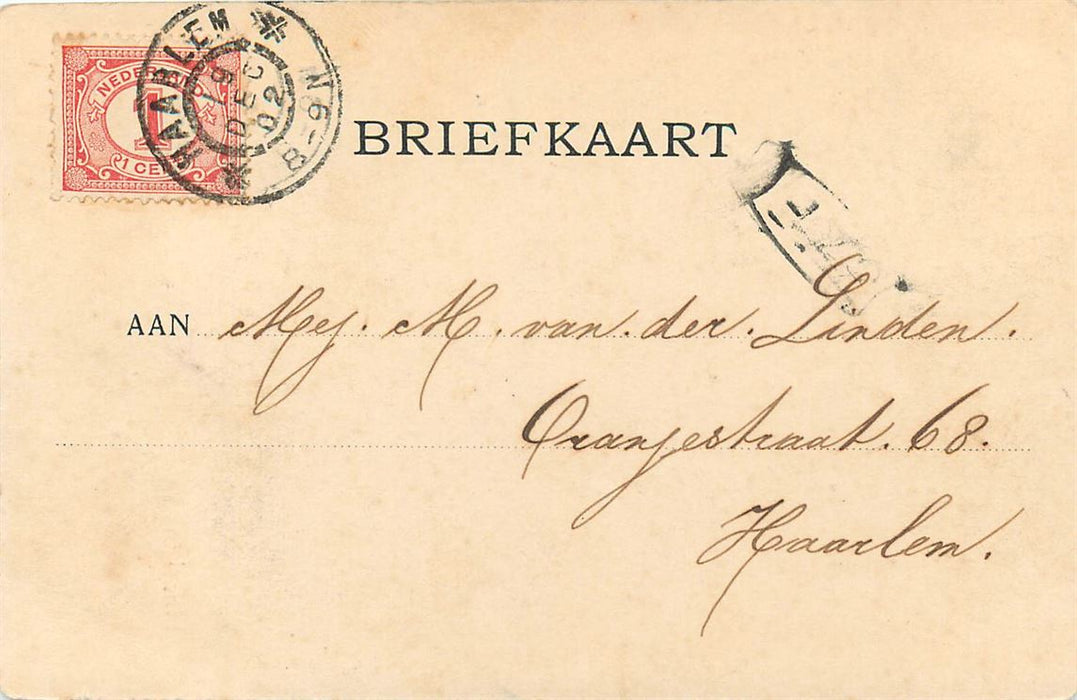 NEDERLAND
1
1 CENT
HAARLEM
19 DEC 02
8-9N
BRIEFKAART
AAN Mej. M. van der Linden.
Oranjestraat. 68.
Haarlem.